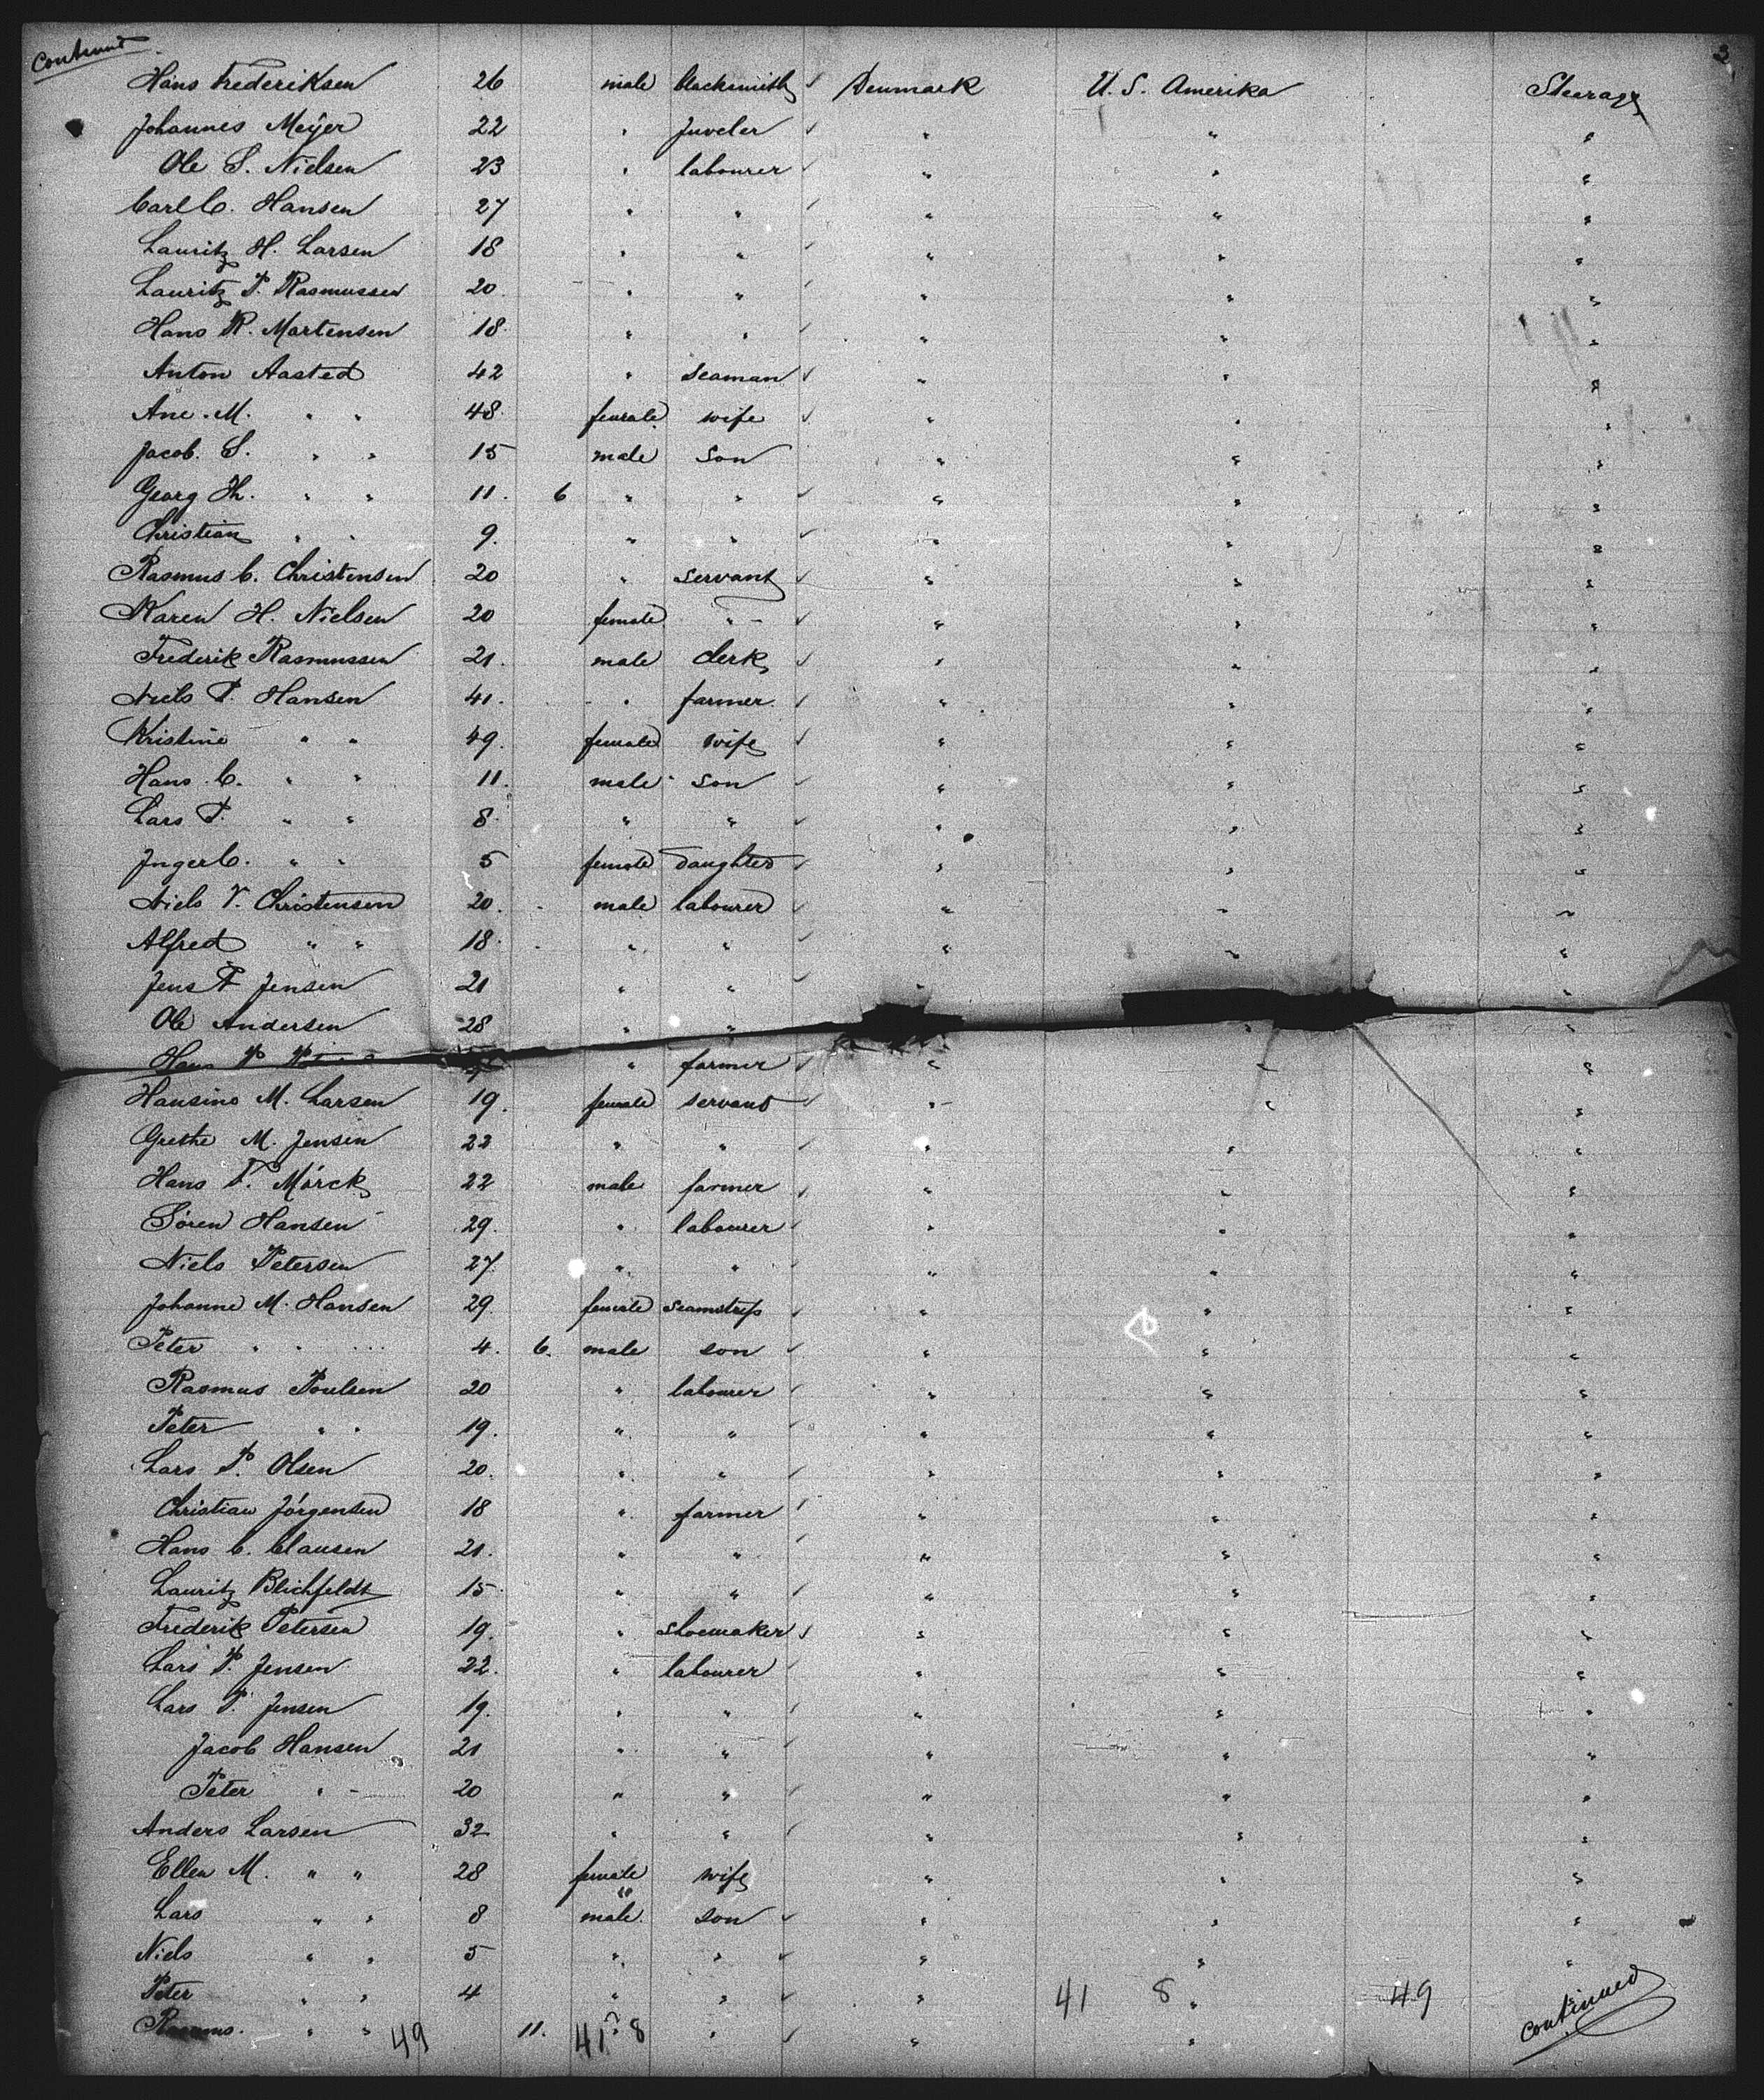 continued 3
Hans Frederiksen 26 male blacksmith ✓ Denmark U. S. Amerika Steerage
Johannes Meÿer 22 " Juveler ✓ " " "
Ole S. Nielsen 23 " labourer ✓ " " "
Carl C. Hansen 27 " " ✓ " " "
Lauritz H. Larsen 18 " " ✓ " " "
Lauritz P. Rasmussen 20 " " ✓ " " "
Hans R. Martensen 18 " " ✓ " " "
Anton Aasted 42 " seaman ✓ " " "
Ane M. " " 48 female wife ✓ " " "
Jacob S. " " 15 male son " " "
Georg Th. " " 11. 6 " " ✓ " " "
Christian " " 9. " " ✓ " " "
Rasmus C. Christensen 20 " servant ✓ " " "
Karen H. Nielsen 20 female " ✓ " " "
Frederik Rasmussen 21. male clerk ✓ " " "
Niels P. Hansen 41. " farmer ✓ " " "
Kristine " " 49. female wife ✓ " " "
Hans C. " " 11. male son ✓ " " "
Lars P. " " 8. " " ✓ " " "
Inger C. " " 5 female daughter ✓ " " "
Niels V. Christensen 20. male labourer ✓ " " "
Alfred " " 18. " " ✓ " " "
Jens P Jensen 21 " " ✓ " "
Ole Andersen 28 " " " "
Hans P " farmer ✓ " " "
Hansine M. Larsen 19. female servant ✓ " " "
Grethe M. Jensen 22 " " ✓ " " "
Hans P. Mörck 22 male farmer ✓ " " "
Sören Hansen 29. " labourer ✓ " " "
Niels Petersen 27. " " ✓ " " "
Johanne M. Hansen 29. female seamstress ✓ " " "
Peter " " 4. 6. male son ✓ " " "
Rasmus Poulsen 20 " labourer ✓ " " "
Peter " " 19. " " ✓ " " "
Lars P. Olsen 20. " " ✓ " " "
Christian Jörgensen 18 " farmer ✓ " " "
Hans C. Clausen 21. " " ✓ " " "
Lauritz Blichfeldt 15. " " ✓ " " "
Frederik Petersen 19. " shoemaker ✓ " " "
Lars P. Jensen 22. " labourer ✓ " " "
Lars P. Jensen 19. " " ✓ " " "
Jacob Hansen 21 " " ✓ " " "
Peter " 20 " " ✓ " " "
Anders Larsen 32 " " ✓ " " "
Ellen M. " " 28 female wife " " "
Lars " " 8 male son ✓ " " "
Niels " " 5 " " ✓ " " "
Peter " " 4 " " ✓ " 41 8 " 49 "
Rasmus " " 49 11. 41 8 " ✓ " " continued